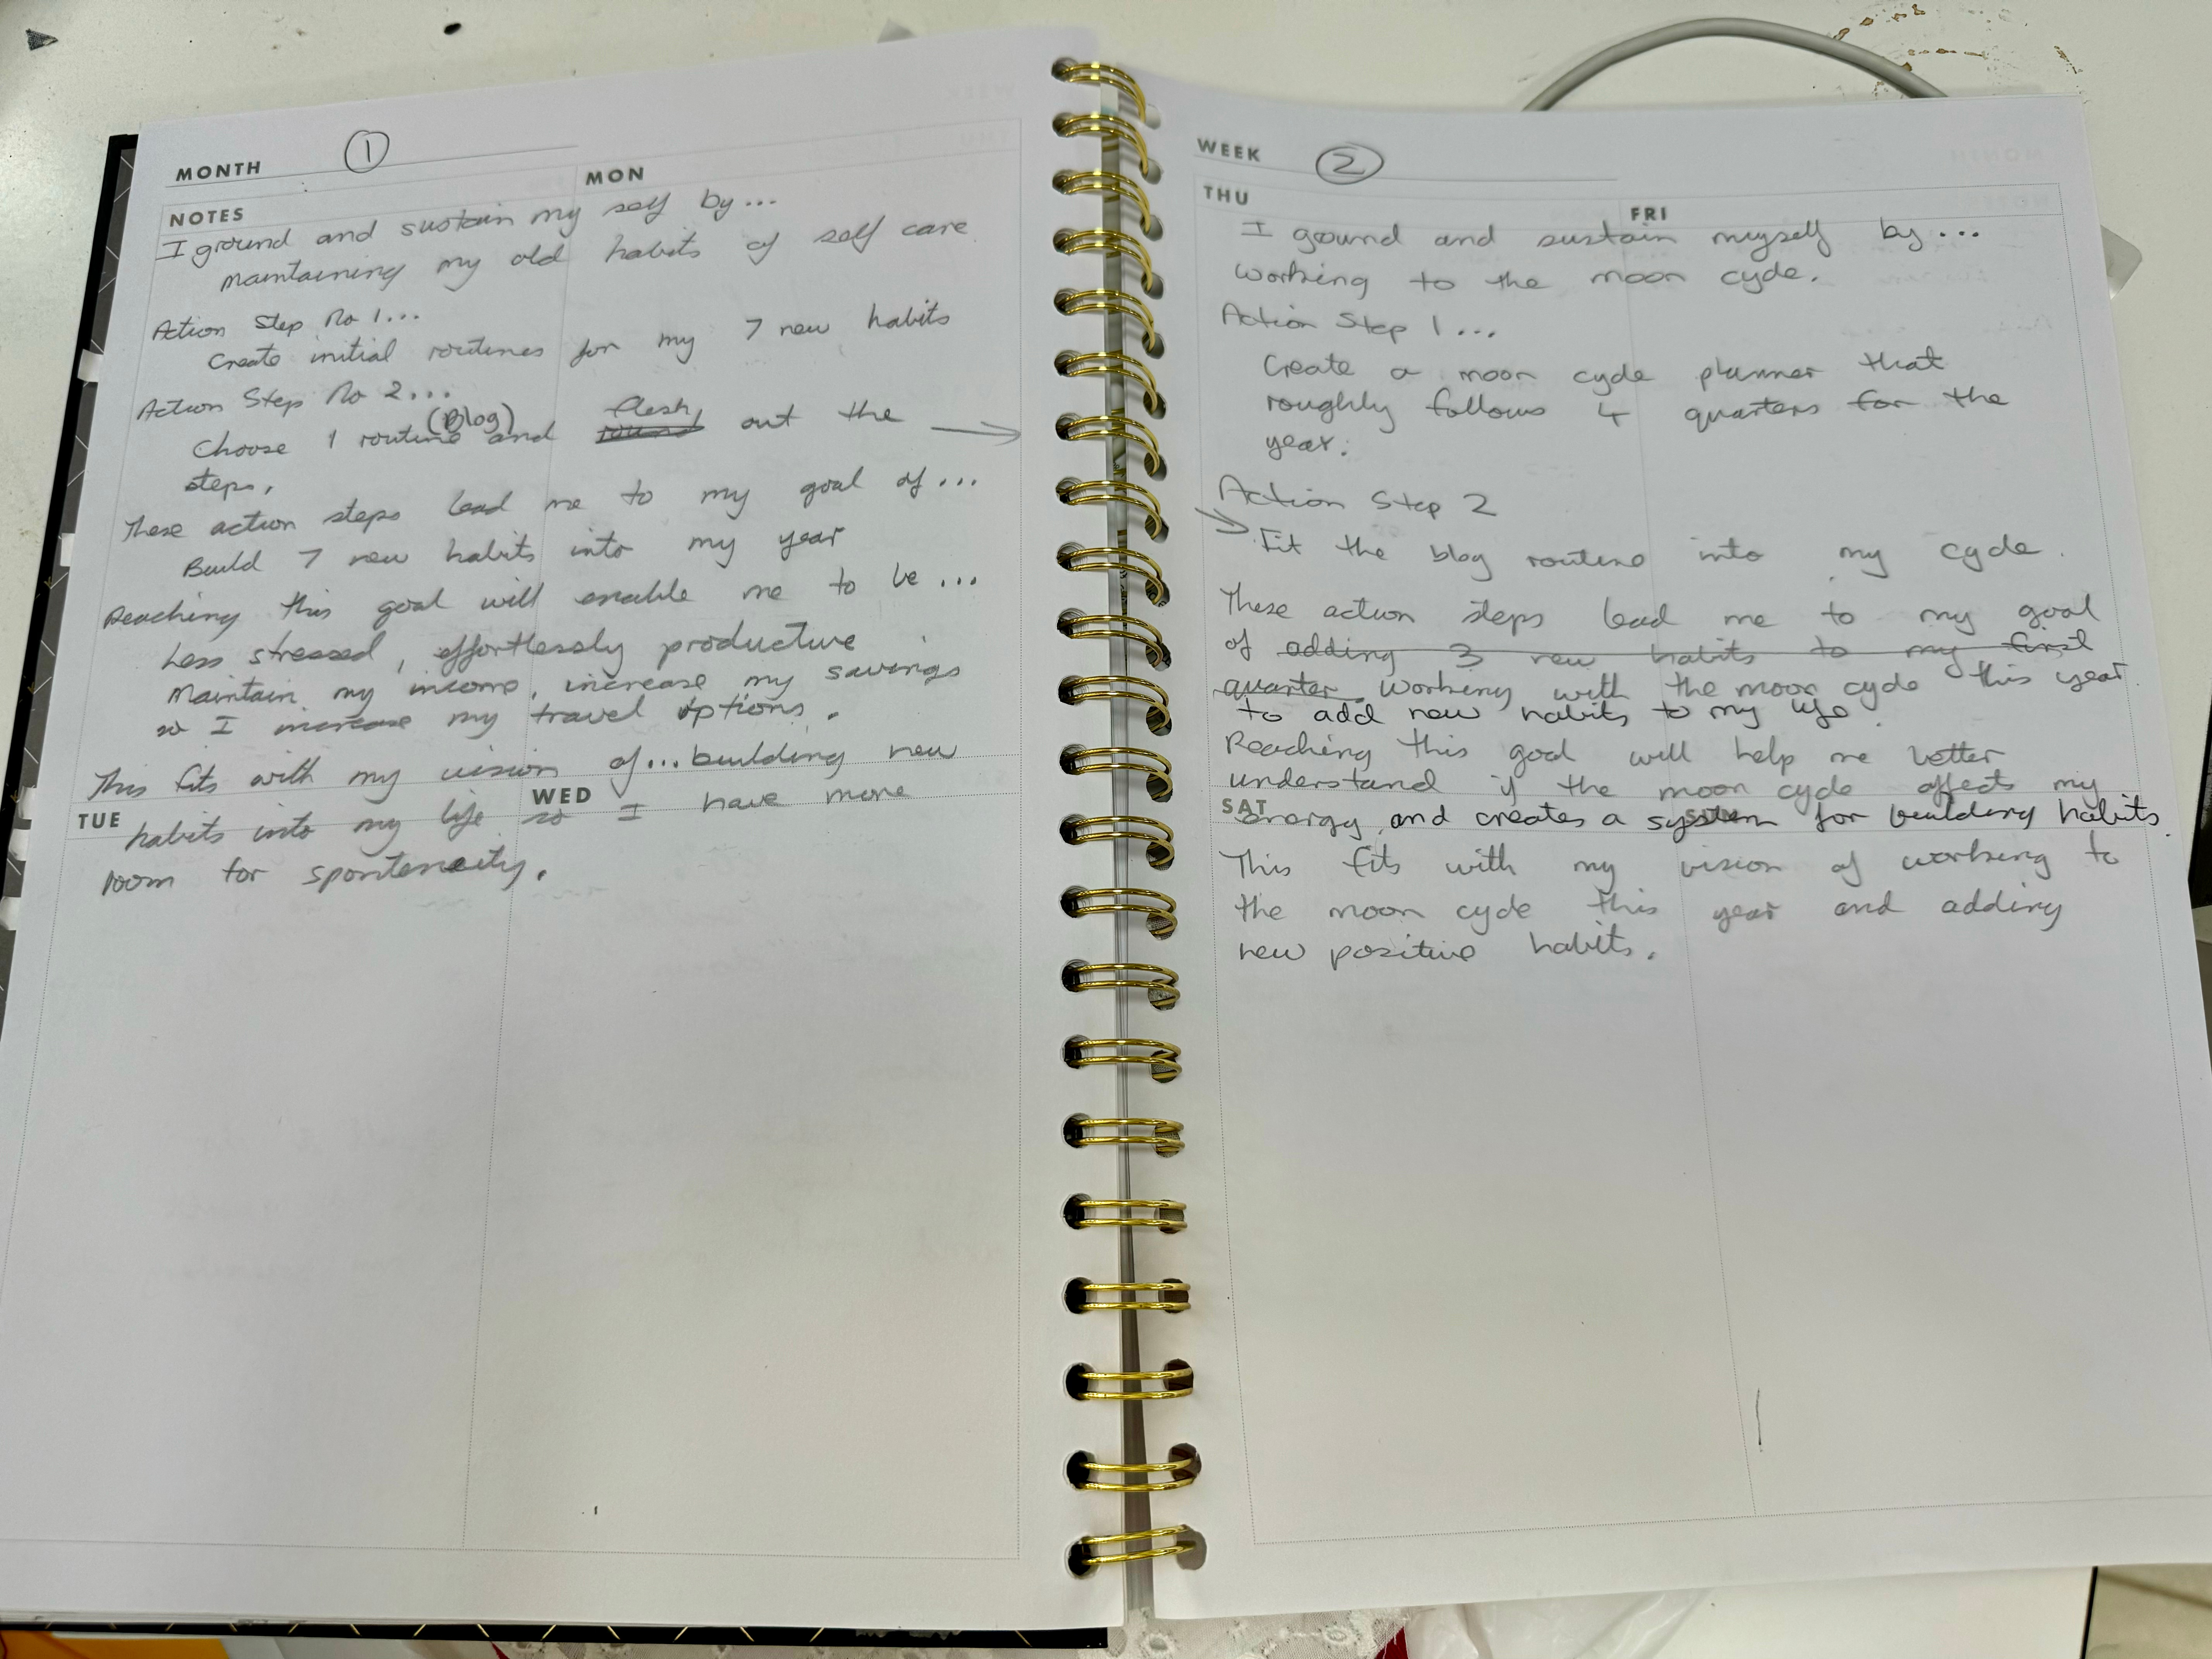 MONTH 1
MON
NOTES
I ground and sustain my self by...
maintaining my old habits of self care
Action Step No 1...
Create initial routines for my 7 new habits
Action Step No 2...
(Blog) flesh
Choose 1 routine and round out the →
steps.
These action steps lead me to my goal of...
Build 7 new habits into my year
Reaching this goal will enable me to be...
Less stressed, effortlessly productive
Maintain my income, increase my savings
so I increase my travel options.
This fits with my vision of...building new
WED
TUE
habits into my life so I have more
room for sponteneity.
WEEK 2
THU
FRI
I ground and sustain myself by...
working to the moon cycle.
Action Step 1...
Create a moon cycle planner that
roughly follows 4 quarters for the
year.
Action Step 2
→ Fit the blog routine into my cycle.
These action steps lead me to my goal
of adding 3 new habits to my first
quarter working with the moon cycle this year
to add new habits to my life.
Reaching this goal will help me better
understand if the moon cycle affects my
SAT SUN
energy and creates a system for building habits.
This fits with my vision of working to
the moon cycle this year and adding
new positive habits.